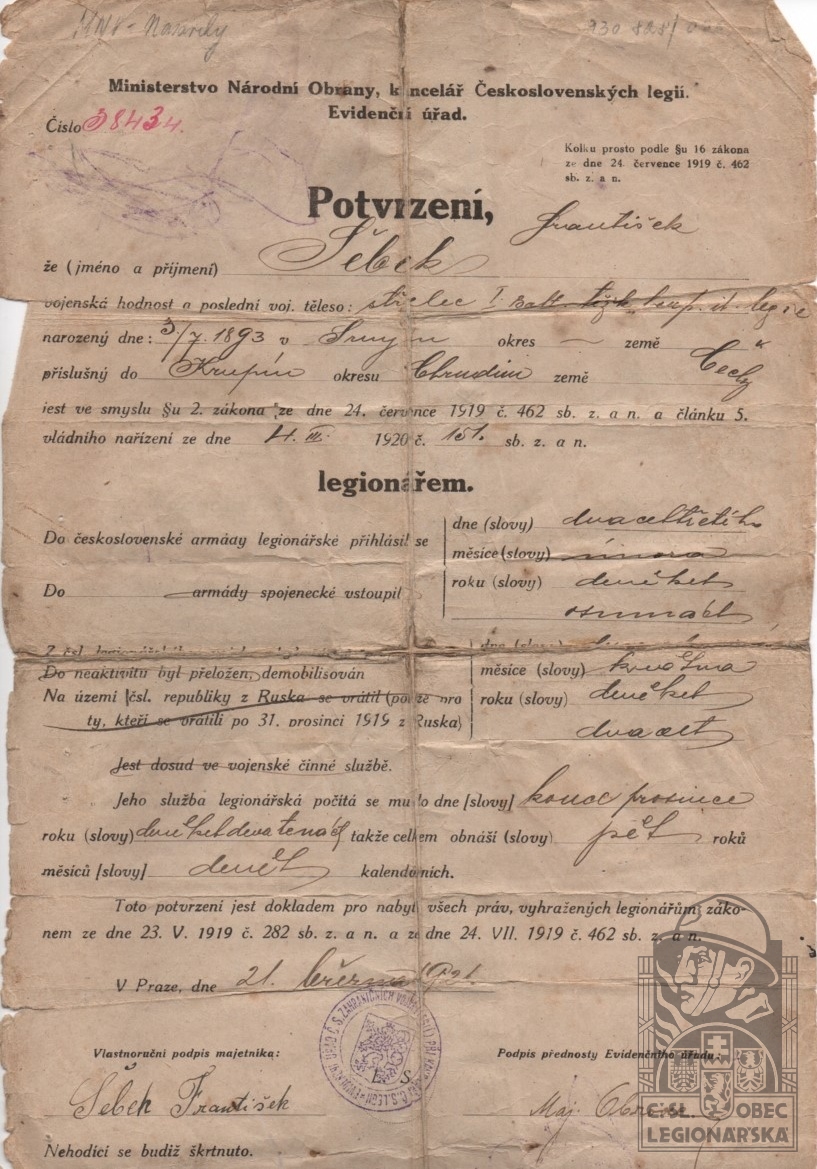 MNV - Nasavrky
Ministerstvo Národní Obrany, kancelář Československých legií.
Evidenční úřad.
Číslo 38434.
Kolku prosto podle §u 16 zákona
ze dne 24. července 1919 č. 462
sb. z. a n.
Potvrzení,
že (jméno a příjmení) Šebek František
vojenská hodnost a poslední voj. těleso: střelec I. it. legie
narozený dne: 3/7. 1893 v okres — země
příslušný do okresu Chrudim země Čechy
jest ve smyslu §u 2. zákona ze dne 24. července 1919 č. 462 sb. z. a n. a článku 5.
vládního nařízení ze dne 4. III. 1920 č. 151. sb. z. a n.
legionářem.
Do československé armády legionářské přihlásil se
dne (slovy) dvacettřetího
měsíce (slovy) února
Do armády spojenecké vstoupil
roku (slovy) devětset
osmnáct
Do neaktivity byl přeložen, demobilisován
měsíce (slovy) května
Na území čsl. republiky z Ruska se vrátil (pouze pro
roku (slovy) devětset
ty, kteří se vrátili po 31. prosinci 1919 z Ruska)
dvacet
Jest dosud ve vojenské činné službě.
Jeho služba legionářská počítá se mu do dne [slovy] konce prosince
roku (slovy) devětsetdevatenáct takže celkem obnáší (slovy) pět roků
měsíců [slovy] devět kalendářních.
Toto potvrzení jest dokladem pro nabytí všech práv, vyhražených legionářům záko-
nem ze dne 23. V. 1919 č. 282 sb. z. a n. a ze dne 24. VII. 1919 č. 462 sb. z. a n.
V Praze, dne 21. března 1921.
Vlastnoruční podpis majetníka:
Podpis přednosty Evidenčního úřadu:
L. S.
Šebek František
Maj.
Nehodící se budiž škrtnuto.
ČSL. OBEC
LEGIONÁŘSKÁ